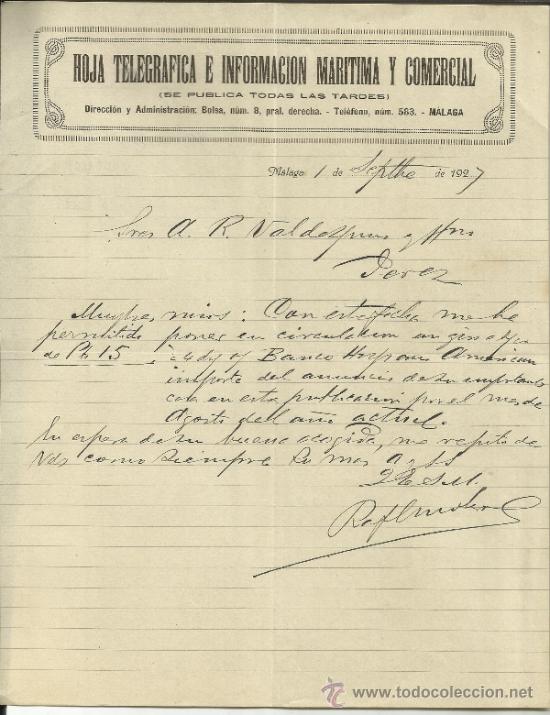 HOJA TELEGRAFICA E INFORMACION MARITIMA Y COMERCIAL
(SE PUBLICA TODAS LAS TARDES)
Dirección y Administración: Bolsa, núm. 8, pral. derecha. - Teléfono, núm. 563. - MÁLAGA
Málaga 1 de Septbe de 1927
Sres A. R. Valdespino y Hno
Jerez
Muy Sres mios: Con esta fecha me he
permitido poner en circulacion un giro a/c
de Pts 15, a 4 d/v o/ Banco Hispano Americano
importe del anuncio de su importante
casa en esta publicacion por el mes de
Agosto del año actual.
En espera de su buena acogida, me repito de
Vds como siempre su mas a y ss
q e s m
Raf
todocoleccion
www.todocoleccion.net